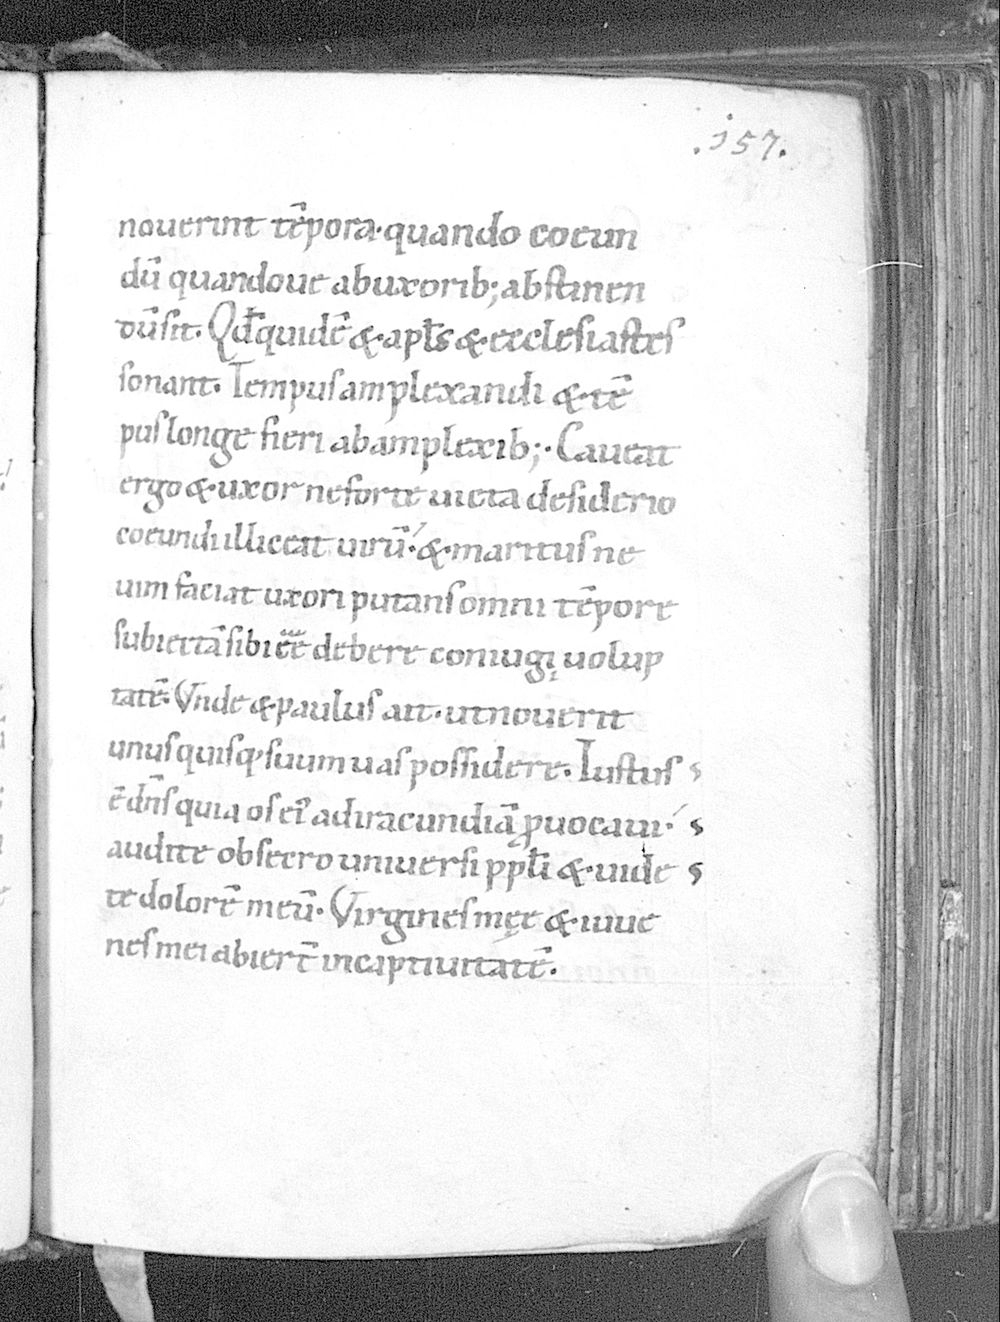 .157.
nouerint tēpora· quando coeun
dū quandoue abuxorib; abstinen
dūsit. Qd̄ quidē & apl̄s & ecclesiastes
sonant. Tempus amplexandi & tē
pus longe fieri abamplexib;. Caueat
ergo & uxor ne forte uicta desiderio
coeundi illiceat uirū. & maritus ne
uim faciat uxori putans omni tēpore
subiectā sibi eē debere coniugę uolup
tatē. Vnde & paulus ait. ut nouerit
unusquisq; suum uas possidere. Iustus
ē dn̄s quia os ei' adiracundiā ꝓuocaui.
audite obsecro uniuersi ppl̄i & uide
te dolorē meū. Virgines męe & iuue
nes mei abiert̄ incaptiuitatē.